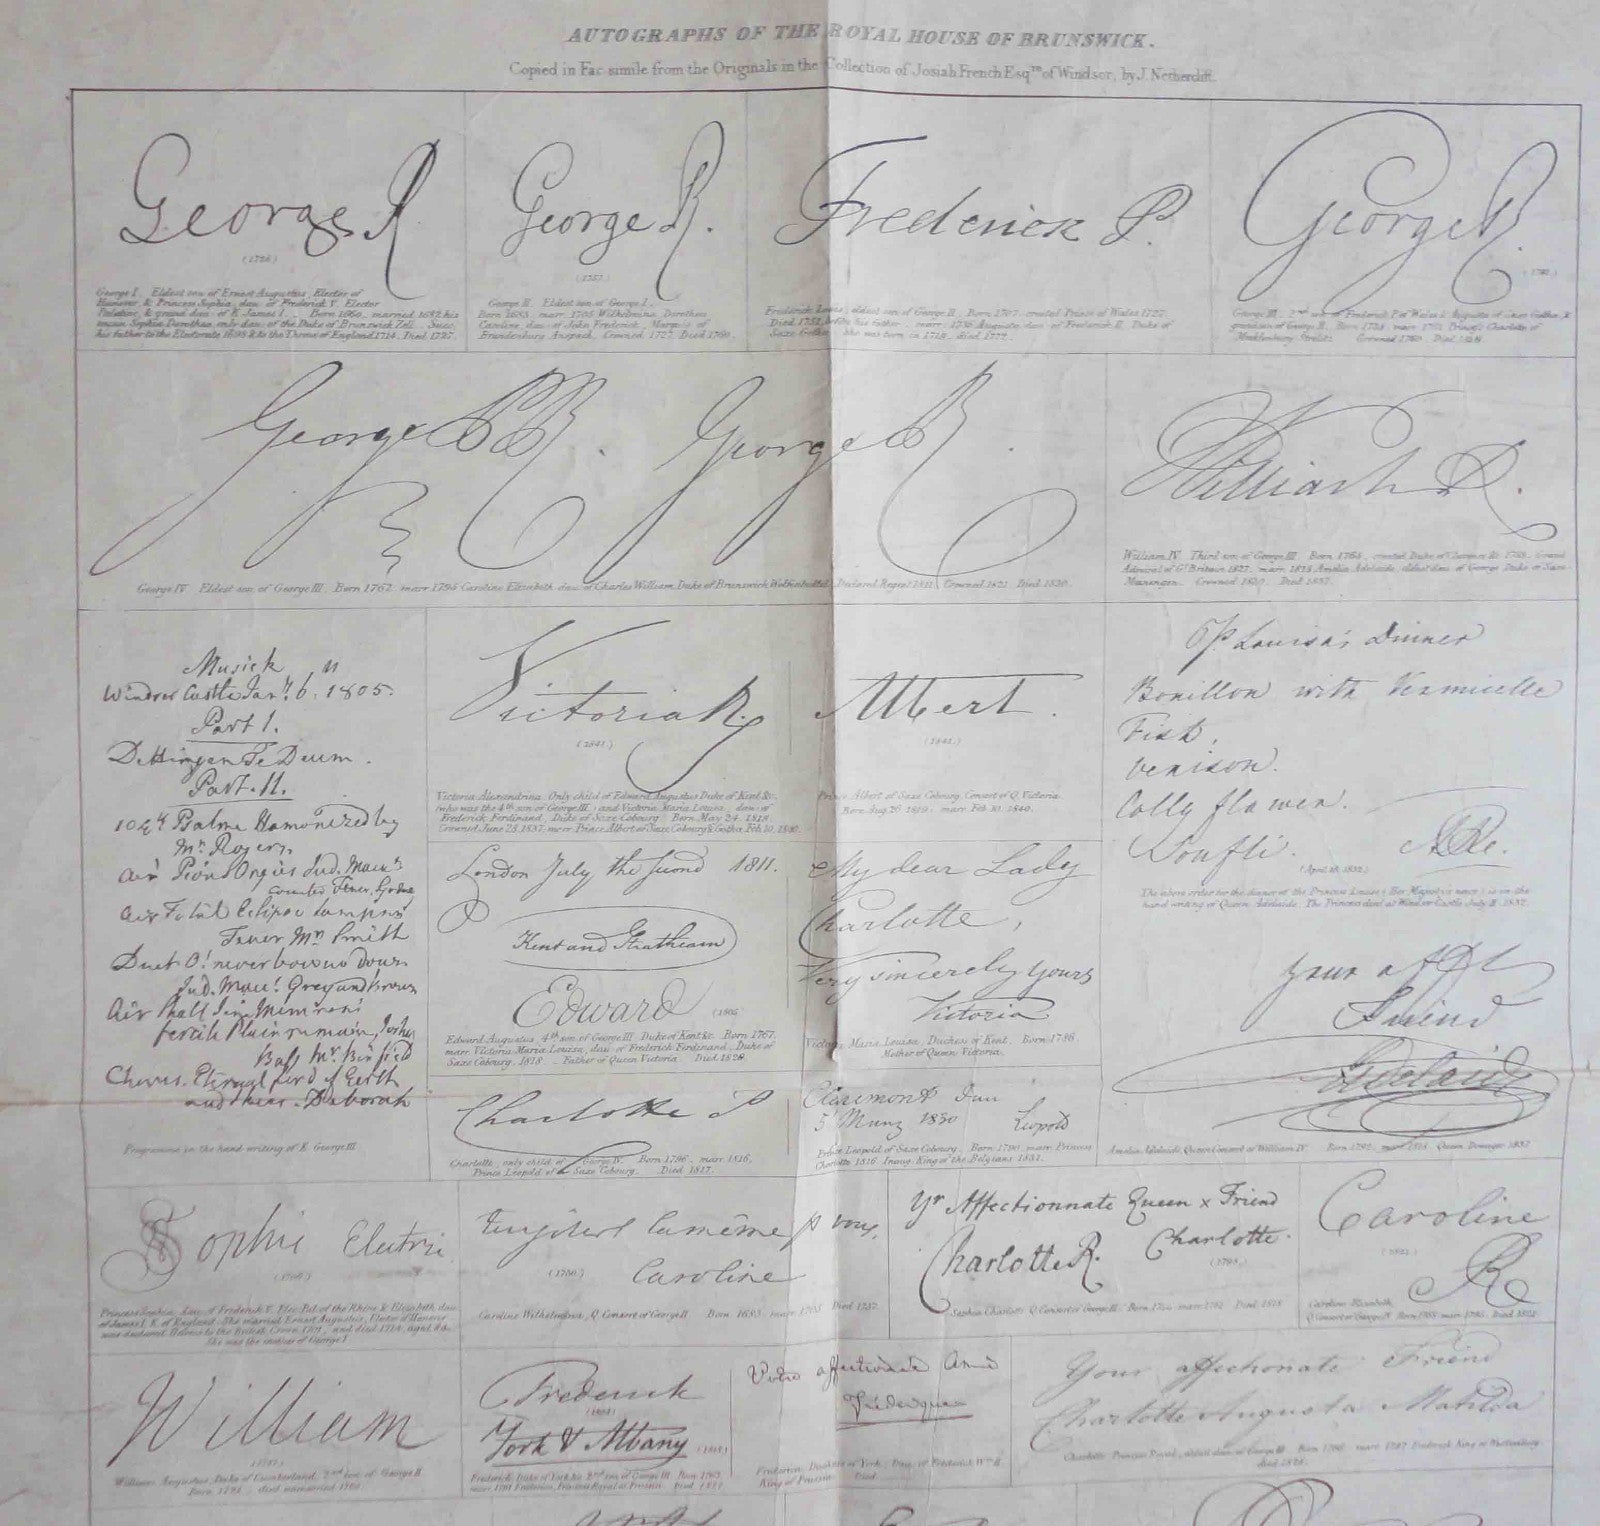 AUTOGRAPHS OF THE ROYAL HOUSE OF BRUNSWICK.
Copied in Fac simile from the Originals in the Collection of Josiah French Esqre of Windsor, by J. Netherclift.
George R
George I. Eldest son of Ernest Augustus, Elector of
Hanover, & Princess Sophia, dau. of Frederick V. Elector
Palatine, & grand dau. of K. James I. Born 1660, married 1682 his
cousin Sophia Dorothea, only dau. of the Duke of Brunswick Zell. Succ.
his father to the Electorate 1698 & to the Throne of England 1714. Died 1727.
George R.
(1757.)
George II. Eldest son of George I.
Born 1683, marr. 1705 Wilhelmina Dorothea
Caroline dau. of John Frederick, Marquis of
Brandenburg Anspach, Crowned 1727. Died 1760.
Frederick P.
Frederick Louis, eldest son of George II. Born 1707. created Prince of Wales 1727.
Died 1751, before his father. marr. 1736 Augusta dau. of Frederick II. Duke of
Saxe Gotha. She was born in 1719. died 1772.
George R.
George III. 2nd son of Frederick P. of Wales & Augusta of Saxe Gotha &
grandson of George II. Born 1738. marr. 1761 Princess Charlotte of
Mecklenburg Strelitz. Crowned 1760. Died 1820.
George P R. George R.
George IV. Eldest son of George III. Born 1762. marr. 1795 Caroline Elizabeth dau. of Charles William Duke of Brunswick Wolfenbuttel. Declared Regent 1811. Crowned 1821. Died 1830.
William R.
William IV. Third son of George III. Born 1765. created Duke of Clarence &c. 1789. Grand
Admiral of Gt Britain 1827. marr. 1818 Amelia Adelaide, eldest dau. of George Duke of Saxe
Meiningen. Crowned 1830. Died 1837.
Musick
Windsor Castle Jany. 6. 1805.
Part I.
Dettingen Te Deum.
Part. II.
104th Psalm Harmonized by
Mr. Rogers
Air Pious Orgies Jud. Macs.
Air Total Eclipse Sampson
Tenor Mr. Smith
Duet O! never bow we Down
Jud. Macs.
Air Shall I in Mamres
fertile Plain remain, Joshua
Bass Mr.
Chorus. Eternal Lord of Earth
Deborah
Programme in the hand writing of K. George III.
Victoria R.
(1841.)
Victoria Alexandrina. Only child of Edward Augustus Duke of Kent &c.
(who was the 4th son of George III.) and Victoria Maria Louisa, dau. of
Frederick Ferdinand, Duke of Saxe Cobourg. Born May 24. 1819.
Crowned June 28. 1837. marr. Prince Albert of Saxe Cobourg & Gotha Feb. 10. 1840.
Albert.
(1841.)
Prince Albert of Saxe Cobourg. Consort of Q. Victoria.
Born Aug. 26. 1819. marr. Feb. 10. 1840.
Ps Louisa's Dinner
Bouillon with Vermicelle
Fish.
Venison.
Colly flower.
Soufli. ARe.
The above order for the dinner of the Princess Louise (Her Majesty's niece) is in the
hand writing of Queen Adelaide. The Princess died at Windsor Castle July 11. 1832.
London July the second 1811.
Kent and Strathearn
Edward
Edward Augustus. 4th son of George III. Duke of Kent &c. Born 1767.
marr. Victoria Maria Louisa, dau. of Frederick Ferdinand, Duke of
Saxe Cobourg. 1818. Father of Queen Victoria. Died 1820.
My dear Lady
Charlotte,
Very sincerely yours
Victoria
Victoria Maria Louisa, Duchess of Kent. Born 1786.
Mother of Queen Victoria.
Your aff
Friend
Adelaide
Amelia Adelaide, Queen Consort of William IV. Born 1792. marr. 1818. Queen Dowager 1837.
Charlotte P
Charlotte, only child of George IV. Born 1796. marr. 1816,
Prince Leopold of Saxe Cobourg. Died 1817.
Claremont
5 Munz 1830 Leopold
Prince Leopold of Saxe Cobourg. Born 1790. marr. Princess
Charlotte 1816. Inaug. King of the Belgians 1831.
Sophie Electric
Princess Sophia, dau. of Frederick V. Elec. Pal. of the Rhine & Elizabeth dau.
of James I. K. of England. She married Ernest Augustus, Elector of Hanover
was declared Heiress to the British Crown 1701, and died 1714. aged 84.
She was the mother of George I.
Caroline
Caroline Wilhelmina, Q. Consort of George II. Born 1683. marr. 1705. Died 1737.
Yr Affectionnate Queen x Friend
Charlotte R. Charlotte.
Sophia Charlotte Q. Consort of George III. Born 1744. marr. 1761. Died 1818.
Caroline
R
Caroline Elizabeth,
Q. Consort of George IV. Born 1768. marr. 1795. Died 1821.
William
William Augustus, Duke of Cumberland. 2nd son of George II.
Born 1721. died unmarried 1765.
Frederick
York & Albany
Frederick Duke of York &c. 2nd son of George III. Born 1763.
marr. 1791 Frederica, Princess Royal of Prussia. Died 1827.
Votre affectionée Amie
Frederique
Frederica Duchess of York, Dau. of Frederick Wm II.
King of Prussia. Died
Your affectionate Friend
Charlotte Augusta Matilda
Charlotte Princess Royal, eldest dau. of George III. Born 1766. marr. 1797 Frederick King of Wurtemburg.
died 1828.